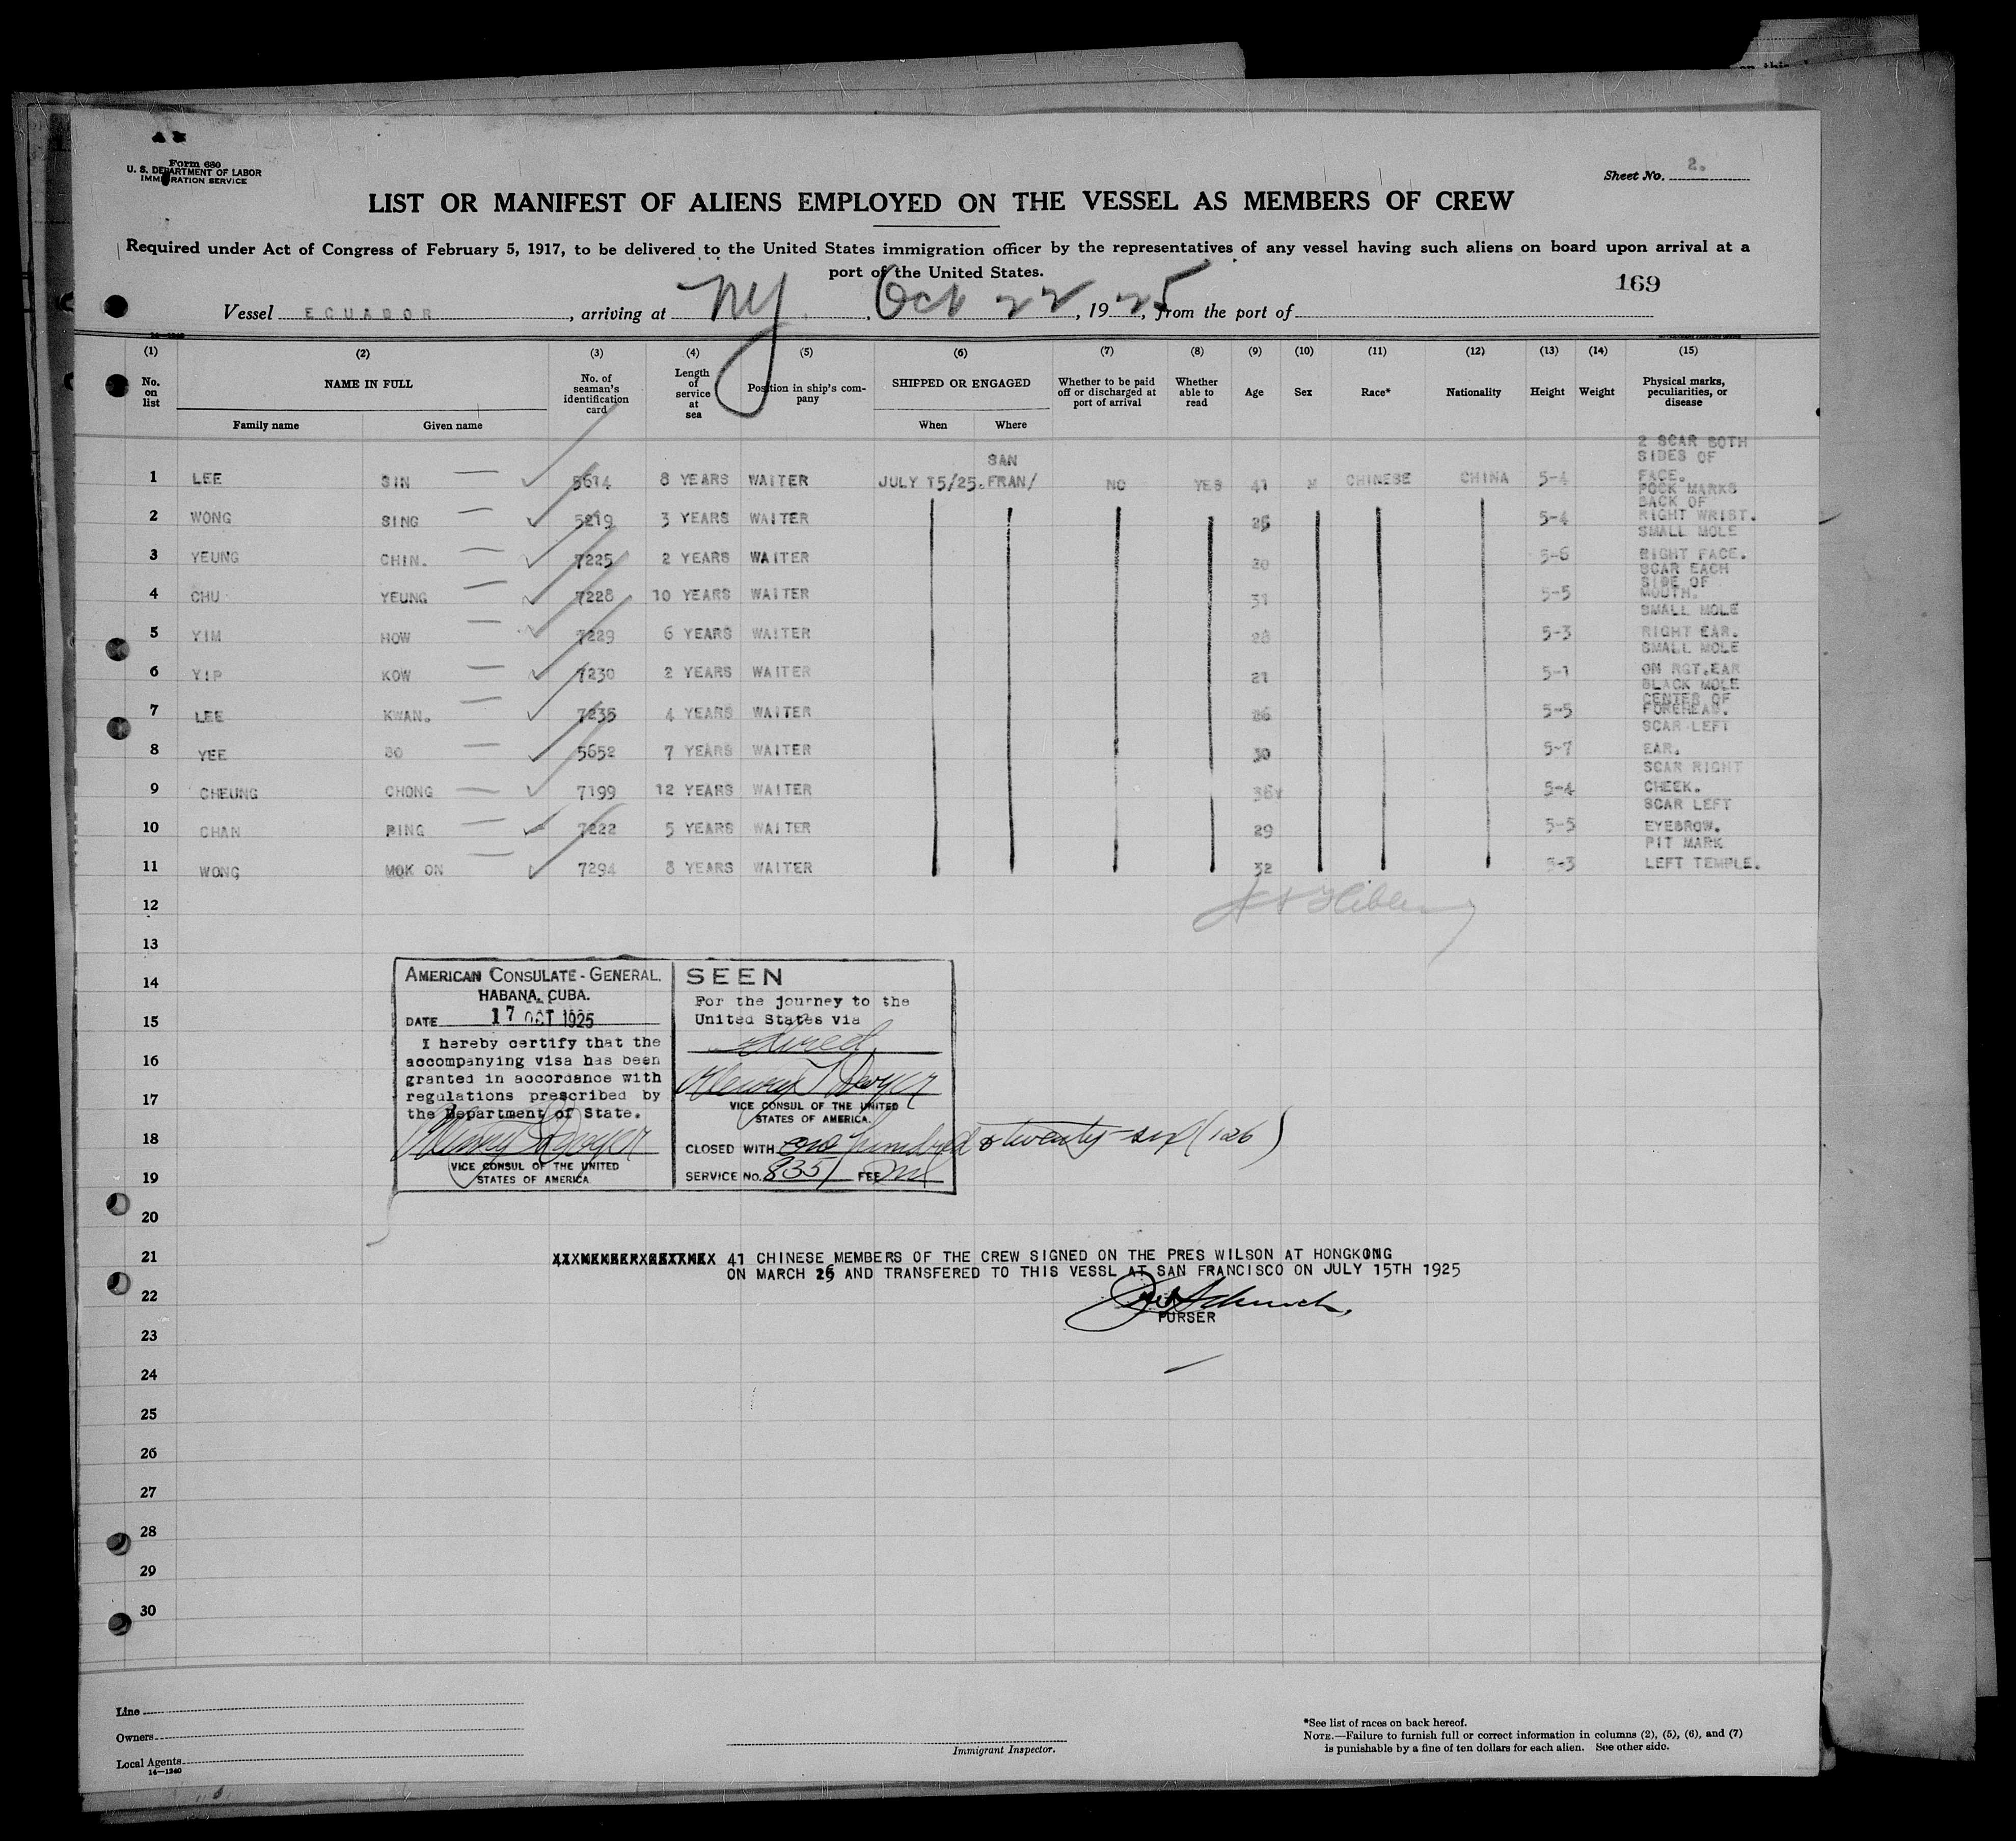 Form 680
U. S. DEPARTMENT OF LABOR
IMMIGRATION SERVICE
Sheet No. 2.
LIST OR MANIFEST OF ALIENS EMPLOYED ON THE VESSEL AS MEMBERS OF CREW
Required under Act of Congress of February 5, 1917, to be delivered to the United States immigration officer by the representatives of any vessel having such aliens on board upon arrival at a
port of the United States.
169
Vessel ECUADOR, arriving at NY. Oct 22, 1925, from the port of
(1) (2) (3) (4) (5) (6) (7) (8) (9) (10) (11) (12) (13) (14) (15)
No. on list NAME IN FULL No. of seaman's identification card Length of service at sea Position in ship's company SHIPPED OR ENGAGED Whether to be paid off or discharged at port of arrival Whether able to read Age Sex Race* Nationality Height Weight Physical marks, peculiarities, or disease
Family name Given name When Where
1 LEE SIN 5614 8 YEARS WAITER JULY 15/25. SAN FRAN/ NO YES 41 M CHINESE CHINA 5-4 2 SCAR BOTH SIDES OF FACE.
2 WONG SING 5219 3 YEARS WAITER 5-4 POCK MARKS BACK OF RIGHT WRIST.
3 YEUNG CHIN. 7225 2 YEARS WAITER 20 5-6 SMALL MOLE RIGHT FACE.
4 CHU YEUNG 7228 10 YEARS WAITER 31 5-5 SCAR EACH SIDE OF MOUTH.
5 YIM HOW 7229 6 YEARS WAITER 28 5-3 SMALL MOLE RIGHT EAR.
6 YIP KOW 7230 2 YEARS WAITER 21 5-1 SMALL MOLE ON RGT.EAR
7 LEE KWAN. 7235 4 YEARS WAITER 26 5-5 BLACK MOLE CENTER OF FOREHEAD.
8 YEE SO 5652 7 YEARS WAITER 30 5-7 SCAR LEFT EAR.
9 CHEUNG CHONG 7199 12 YEARS WAITER 36 5-4 SCAR RIGHT CHEEK.
10 CHAN PING 7222 5 YEARS WAITER 29 5-5 SCAR LEFT EYEBROW.
11 WONG MOK ON 7294 8 YEARS WAITER 32 5-3 PIT MARK LEFT TEMPLE.
12
13
14
15
16
17
18
19
20
21
22
23
24
25
26
27
28
29
30
AMERICAN CONSULATE-GENERAL.
HABANA, CUBA.
DATE 17 OCT 1925
I hereby certify that the
accompanying visa has been
granted in accordance with
regulations prescribed by
the Department of State.
Henry T Dwyer
VICE CONSUL OF THE UNITED
STATES OF AMERICA
SEEN
For the journey to the
United States via
direct
Henry T Dwyer
VICE CONSUL OF THE UNITED
STATES OF AMERICA.
CLOSED WITH one hundred & twenty-six (126)
SERVICE NO. 8351 FEE nil
41 CHINESE MEMBERS OF THE CREW SIGNED ON THE PRES WILSON AT HONGKONG
ON MARCH 26 AND TRANSFERED TO THIS VESSL AT SAN FRANCISCO ON JULY 15TH 1925
PURSER
Line
Owners
Local Agents
14—1240
Immigrant Inspector.
*See list of races on back hereof.
NOTE.—Failure to furnish full or correct information in columns (2), (5), (6), and (7)
is punishable by a fine of ten dollars for each alien. See other side.